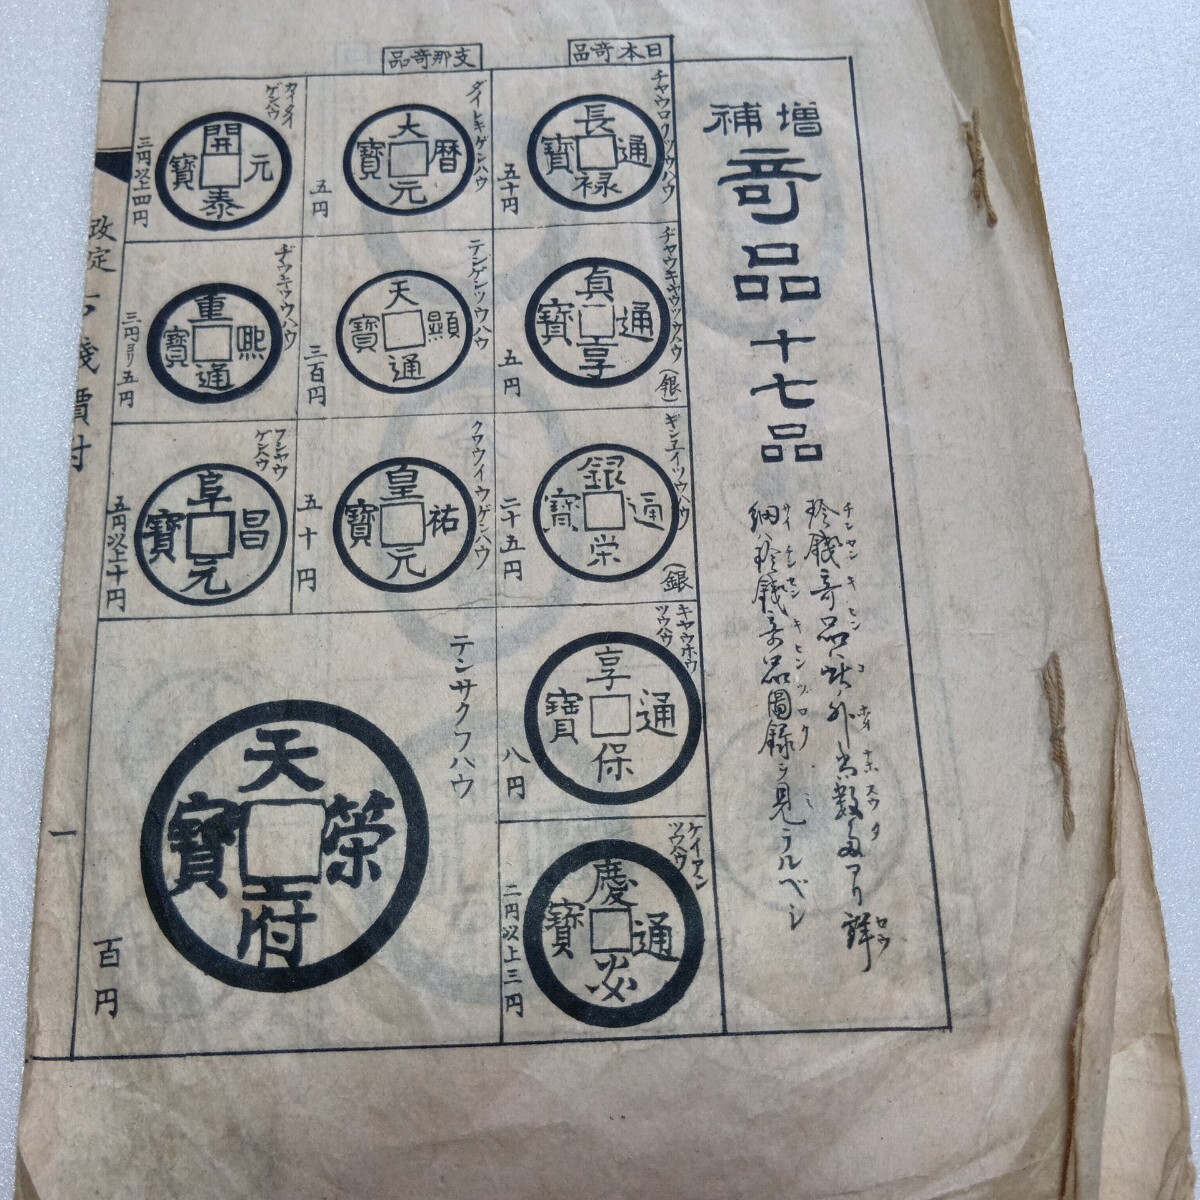 増補
竒品十七品
珍錢竒品ハ此外尚数多アリ詳
チンセンキヒンコホカナホスウタセウ
細ハ珍錢竒品圖録ヲ見ラルベシ
サイチンセンキヒンヅロクミ
日本竒品
チャウロクツウハウ
長禄通寳
五十円
ヂャウキャウツウハウ
(銀)
貞享通寳
五円
ギンエイツウハウ
(銀)
銀栄通寳
二十五円
キャウホウ
ツウハウ
享保通寳
八円
ケイアン
ツウハウ
慶安通寳
二円以上三円
支那竒品
ダイレキゲンハウ
大暦元寳
五円
テンケンツウハウ
天顯通寳
三百円
クワウイウゲンハウ
皇祐元寳
五十円
テンサクフハウ
天榮府寳
百円
カイタイ
ゲンハウ
開元泰寳
三円以上四円
ヂウキツウハウ
重熙通寳
三円ヨリ五円
フシャウ
ゲンハウ
阜昌元寳
五円以上十円
改定古錢價付
一